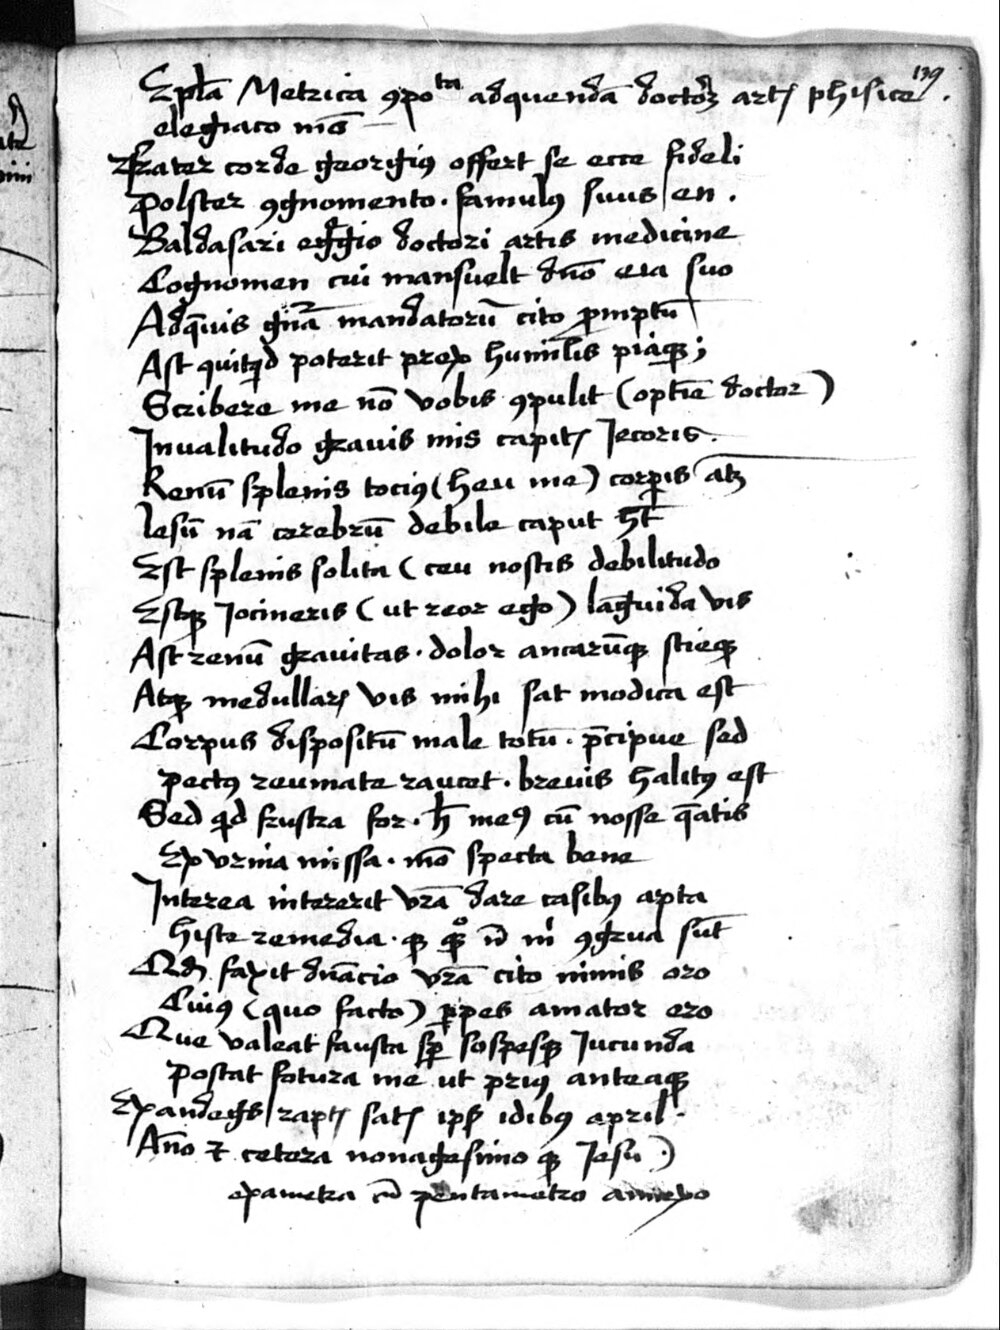 139
Epl̄a Metrica ꝯpoᵗᵃ ad quendā doctoꝝ artꝭ phisice .
elegiaco mō
Frater corde georgiꝰ offert se ecce fideli
Polster ꝯgnomento . famulꝰ suus en .
Baldasari egͥgio doctori artis medicine
Cognomen cui mansuelt dn̄o eia suo
Adq̄uis mandatorū cito promptū
Ast quitqͥd poterit prex humil̄is piaqꝫ ;
Scribere me nō vobis ꝯpulit ( optīe doctor )
Inualitudo grauis mis capitꝭ Iecoris .
Renū splenis tociꝰ ( heu me ) corꝑis atꝫ
lesū nā cerebrū debile caput hꝫ
Est splenis solita ( ceu nostis debilitudo
Estqꝫ Iocineris ( ut reor ego ) lāguida vis
Ast renū grauitas . dolor ancarūqꝫ stieqꝫ
Atqꝫ medullarꝭ vis mihi sat modica est
Corpus dispositū male totū . p̄cipue sed
pectꝰ reumate raucet . breuis halitꝰ est
Sed qͥd frustra for . h̄ meꝰ cū nosse q̄atis
Ex vrina missa . mō specta bene
Interea intererit vr̄a dare casibꝰ apta
hisce remedia . qꝫ ꝯgrua sūt
Qđ faxit dn̄acio vr̄a cito nimis oro
Cuiꝰ ( quo facto ) ꝑpes amator ero
Que valeat fausta sꝑ sospesqꝫ Iucunda
Postat fotura me ut priꝰ anteaqꝫ
Ex andegs raptꝭ satꝭ ipꝭ idibꝰ april .
Āno ⁊ cetera nonagesimo qꝫ Jesu )
exametra cū pentametro annexo